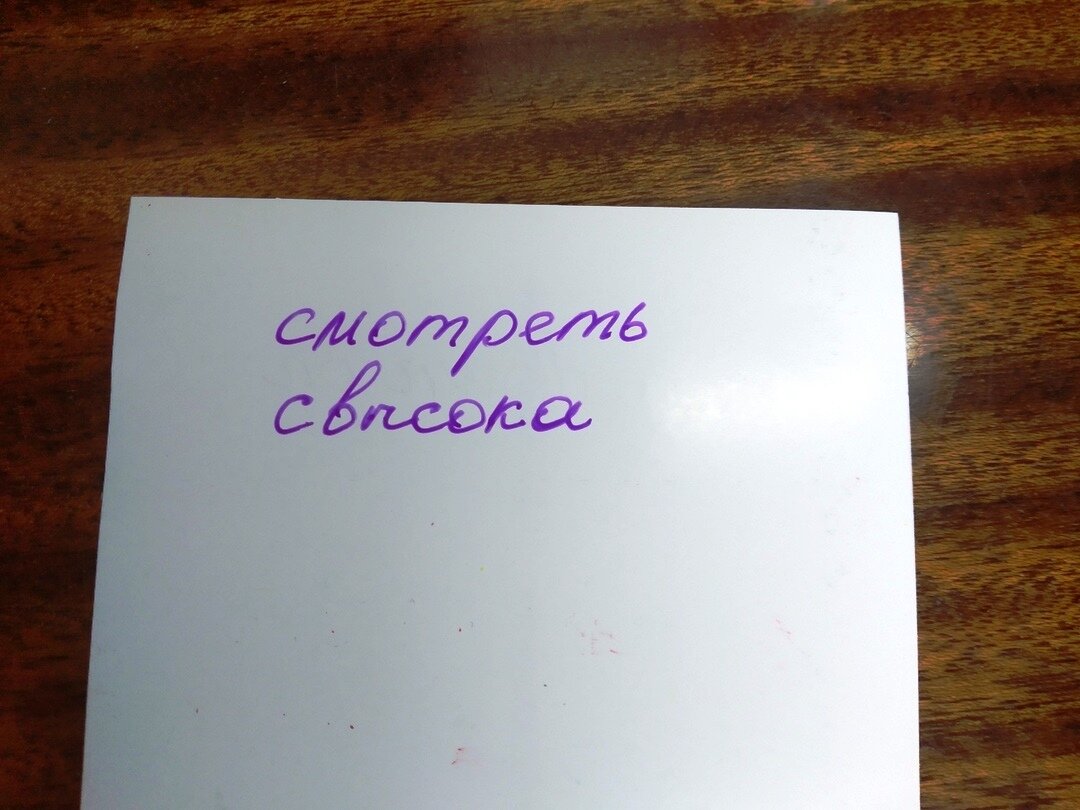 смотреть
свысока